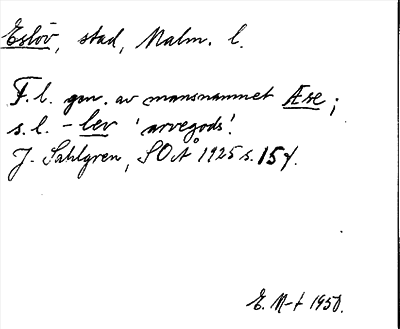 Eslöv, stad, Malm. l.
F.l. gen. av mansnamnet Æse;
s.l. - lev 'arvegods'.
J. Sahlgren, SOÅ 1925 s. 15f.
E. M-t 1950.